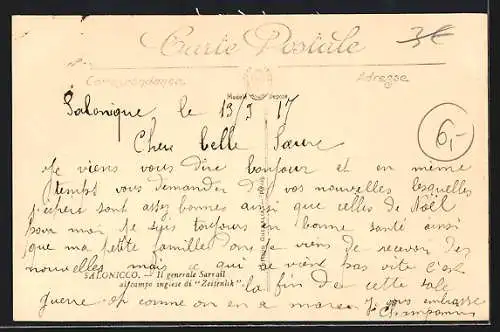 Carte Postale
3€
Correspondance
Adresse
Salonique, le 13/3 17
6,-
Chere belle Sœure
Je viens vous dire bonjour et en même
temps vous demander de vos nouvelles lesquelles
j'espère sont assez bonnes ainsi que celles de Noël
pour moi je suis toujours en bonne santé ainsi
que ma petite famille dont je viens de recevoir des
nouvelles mais ce qui ne vient pas vite c'est
SALONICCO. — Il generale Sarrail
al campo inglese di "Zeitenlik".
la fin de cette sale
guerre et comme on en a marre. Je vous embrasse